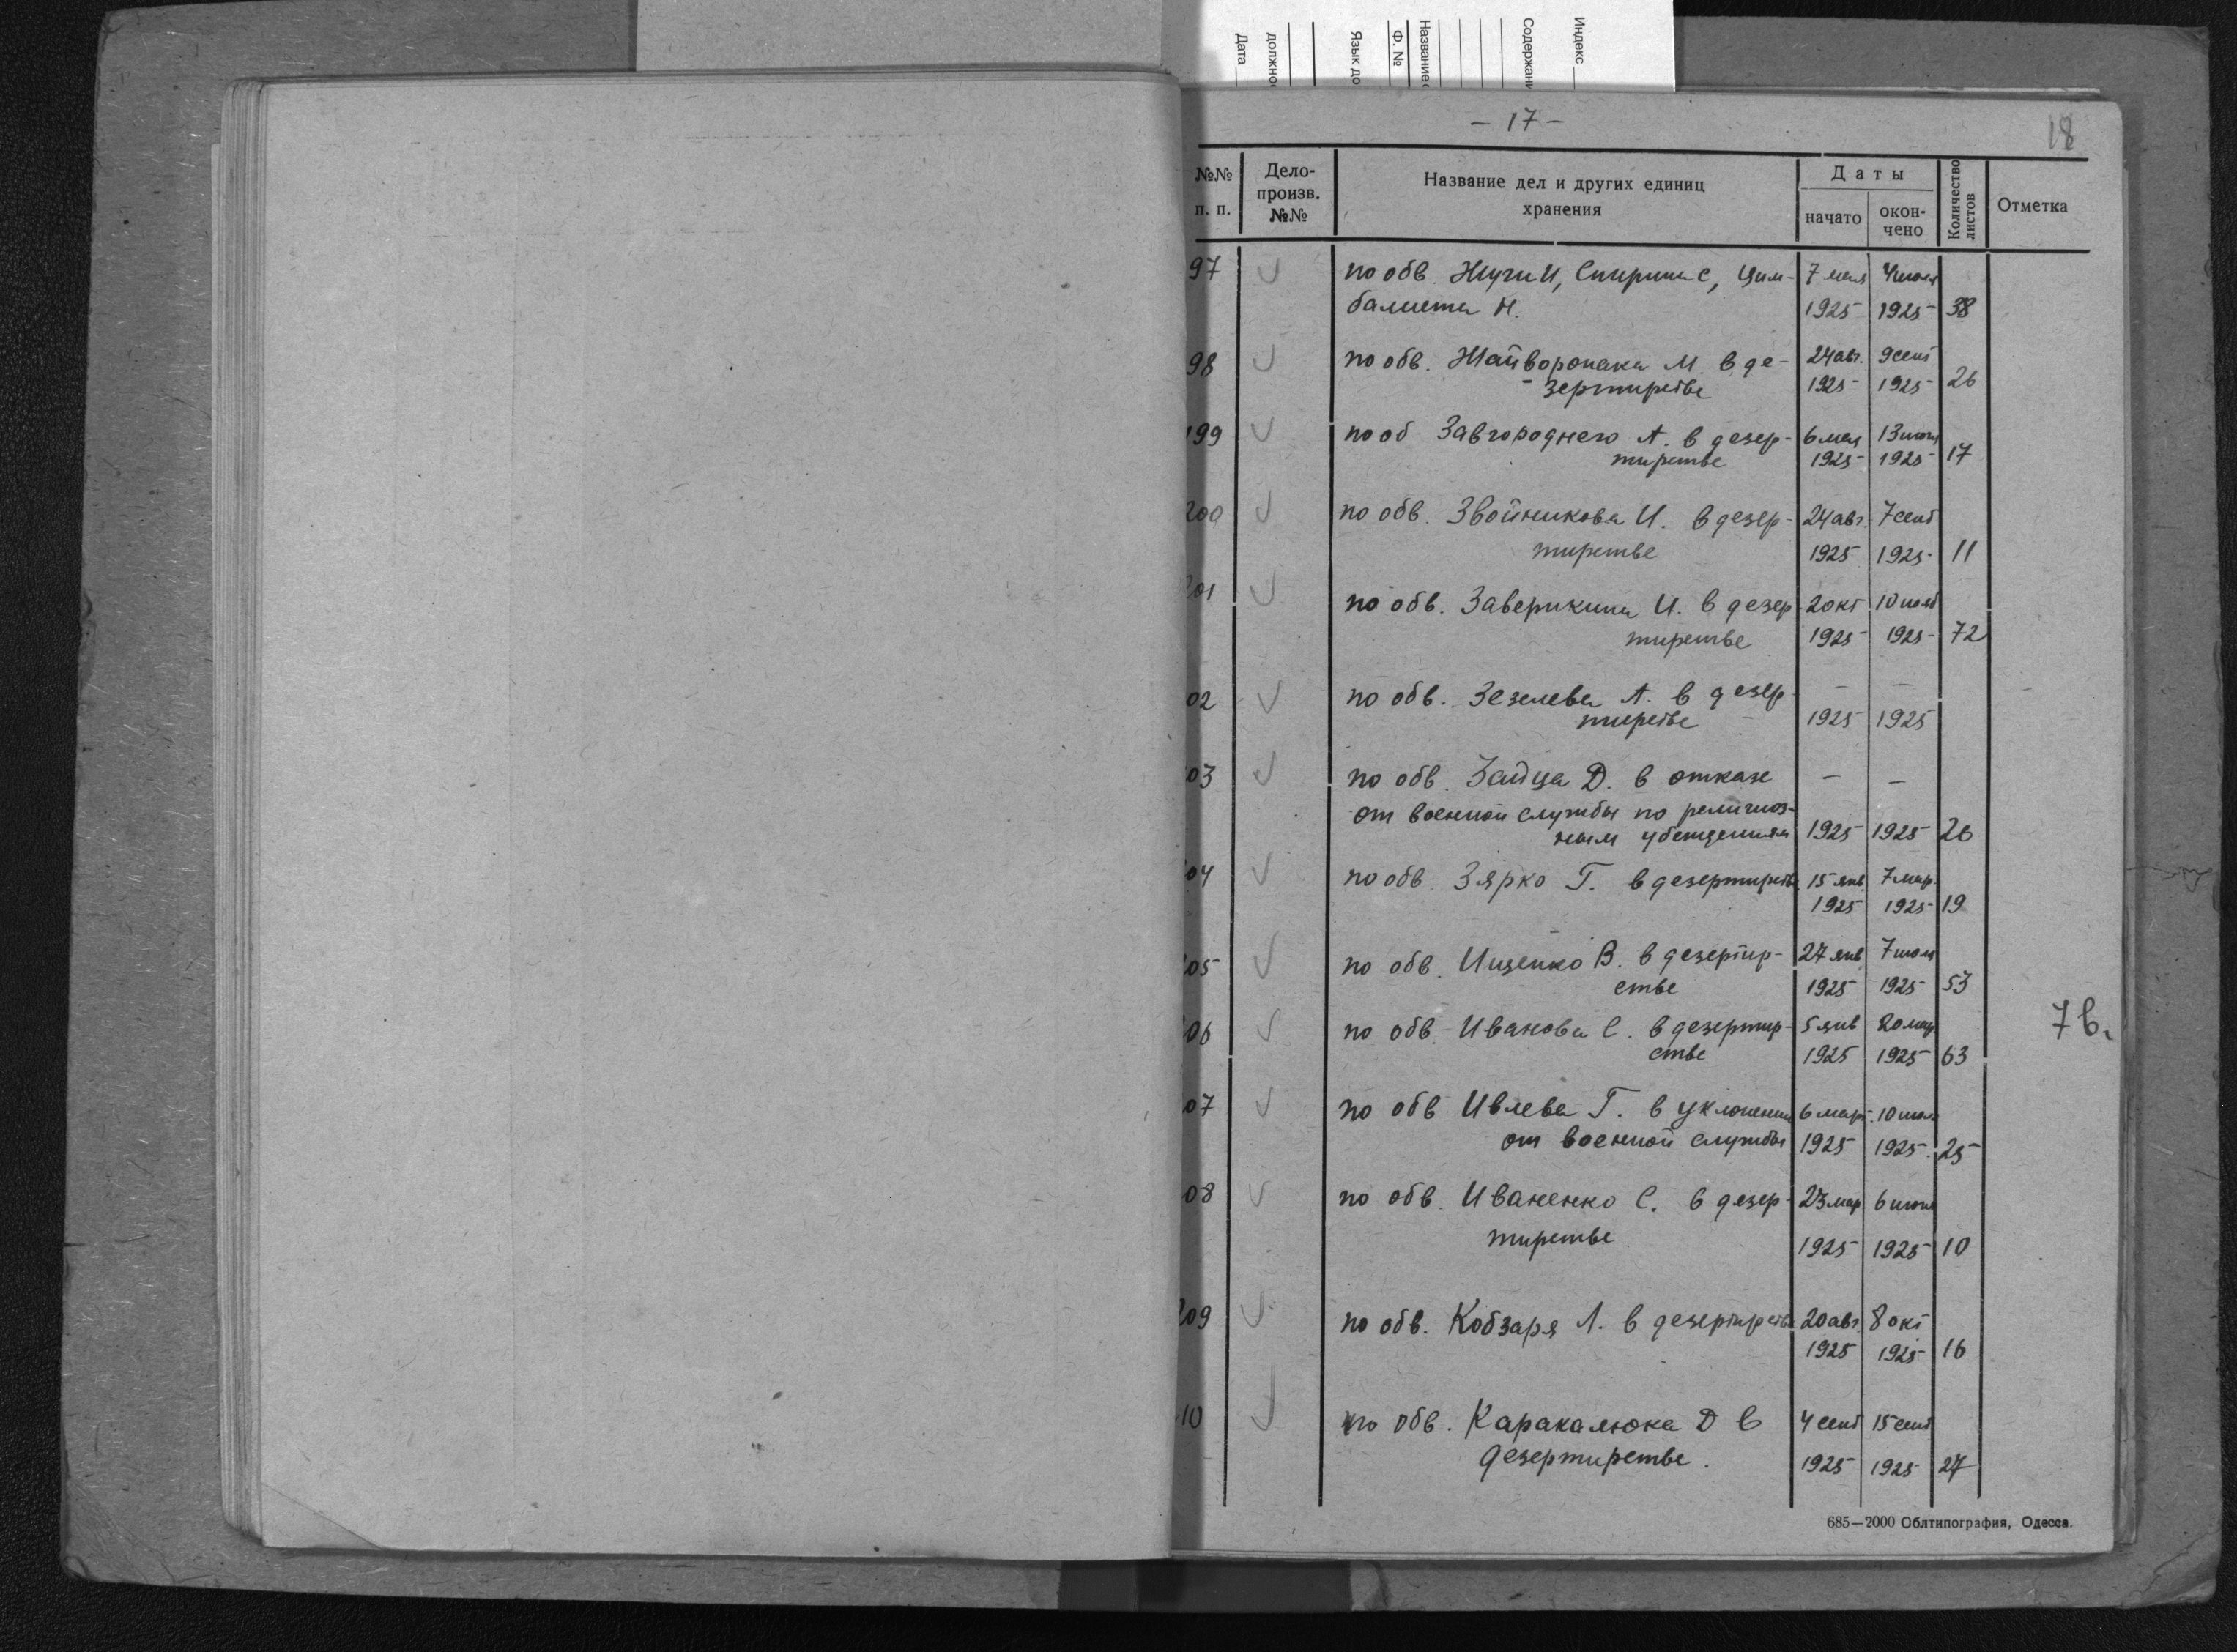 Индекс
Содержани
Название
Ф. №
Язык до
должно
Дата
– 17 –
18
№№ п. п. Дело-произв. №№ Название дел и других единиц хранения Даты начато окон-чено Количество листов Отметка
97 по обв. Жучи И, Спирина С, Цим- 7 мая
балиста Н. 1925 1925 38
98 по обв. Жайворонака М. в де- 24 авг. 9 сент
зертирстве 1925 1925 26
199 по об Завгороднего А. в дезер- 6 мая 13 июня
тирстве 1925 1925 17
200 по обв. Звойникова И. в дезер- 24 авг. 7 сент
тирстве 1925 1925 11
201 по обв. Заверикина И. в дезер 2 окт 10 нояб
тирстве 1925 1925 72
02 по обв. Зезелева А. в дезер- — —
тирстве 1925 1925
03 по обв. Зайца Д. в отказе — —
от военной службы по религиоз-
ным убеждениям 1925 1925 26
04 по обв. Зярко Г. в дезертирстве 15 янв. 7 мар.
1925 1925 19
05 по обв. Ищенко В. в дезертир- 27 янв 7 июля
стве 1925 1925 53
06 по обв. Иванова С. в дезертир- 5 янв 20 мар
стве 1925 1925 63
7 в.
07 по обв Ивлева Г. в уклонении 6 март. 10 июля
от военной службы 1925 1925 25
08 по обв. Иваненко С. в дезер- 23 мар 6 июня
тирстве 1925 1925 10
209 по обв. Кобзаря Л. в дезертирстве 20 авг. 8 окт
1925 1925 16
10 по обв. Каракалюка Д в 4 сент 15 сент
дезертирстве. 1925 1925 27
685—2000 Облтипография, Одесса.